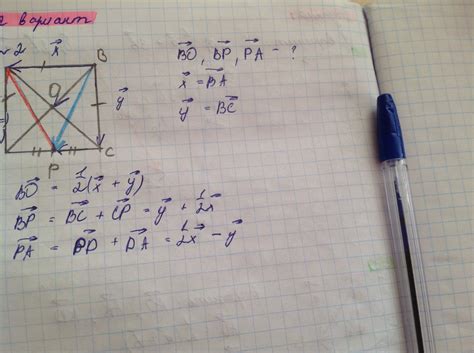 2 вариант
2
x⃗
B
BO⃗, BP⃗, PA⃗ - ?
x⃗ = BA⃗
O
y⃗
y⃗ = BC⃗
P
C
BO⃗ = 1/2(x⃗ + y⃗)
BP⃗ = BC⃗ + CP⃗ = y⃗ + 1/2x⃗
PA⃗ = PD⃗ + DA⃗ = 1/2x⃗ - y⃗